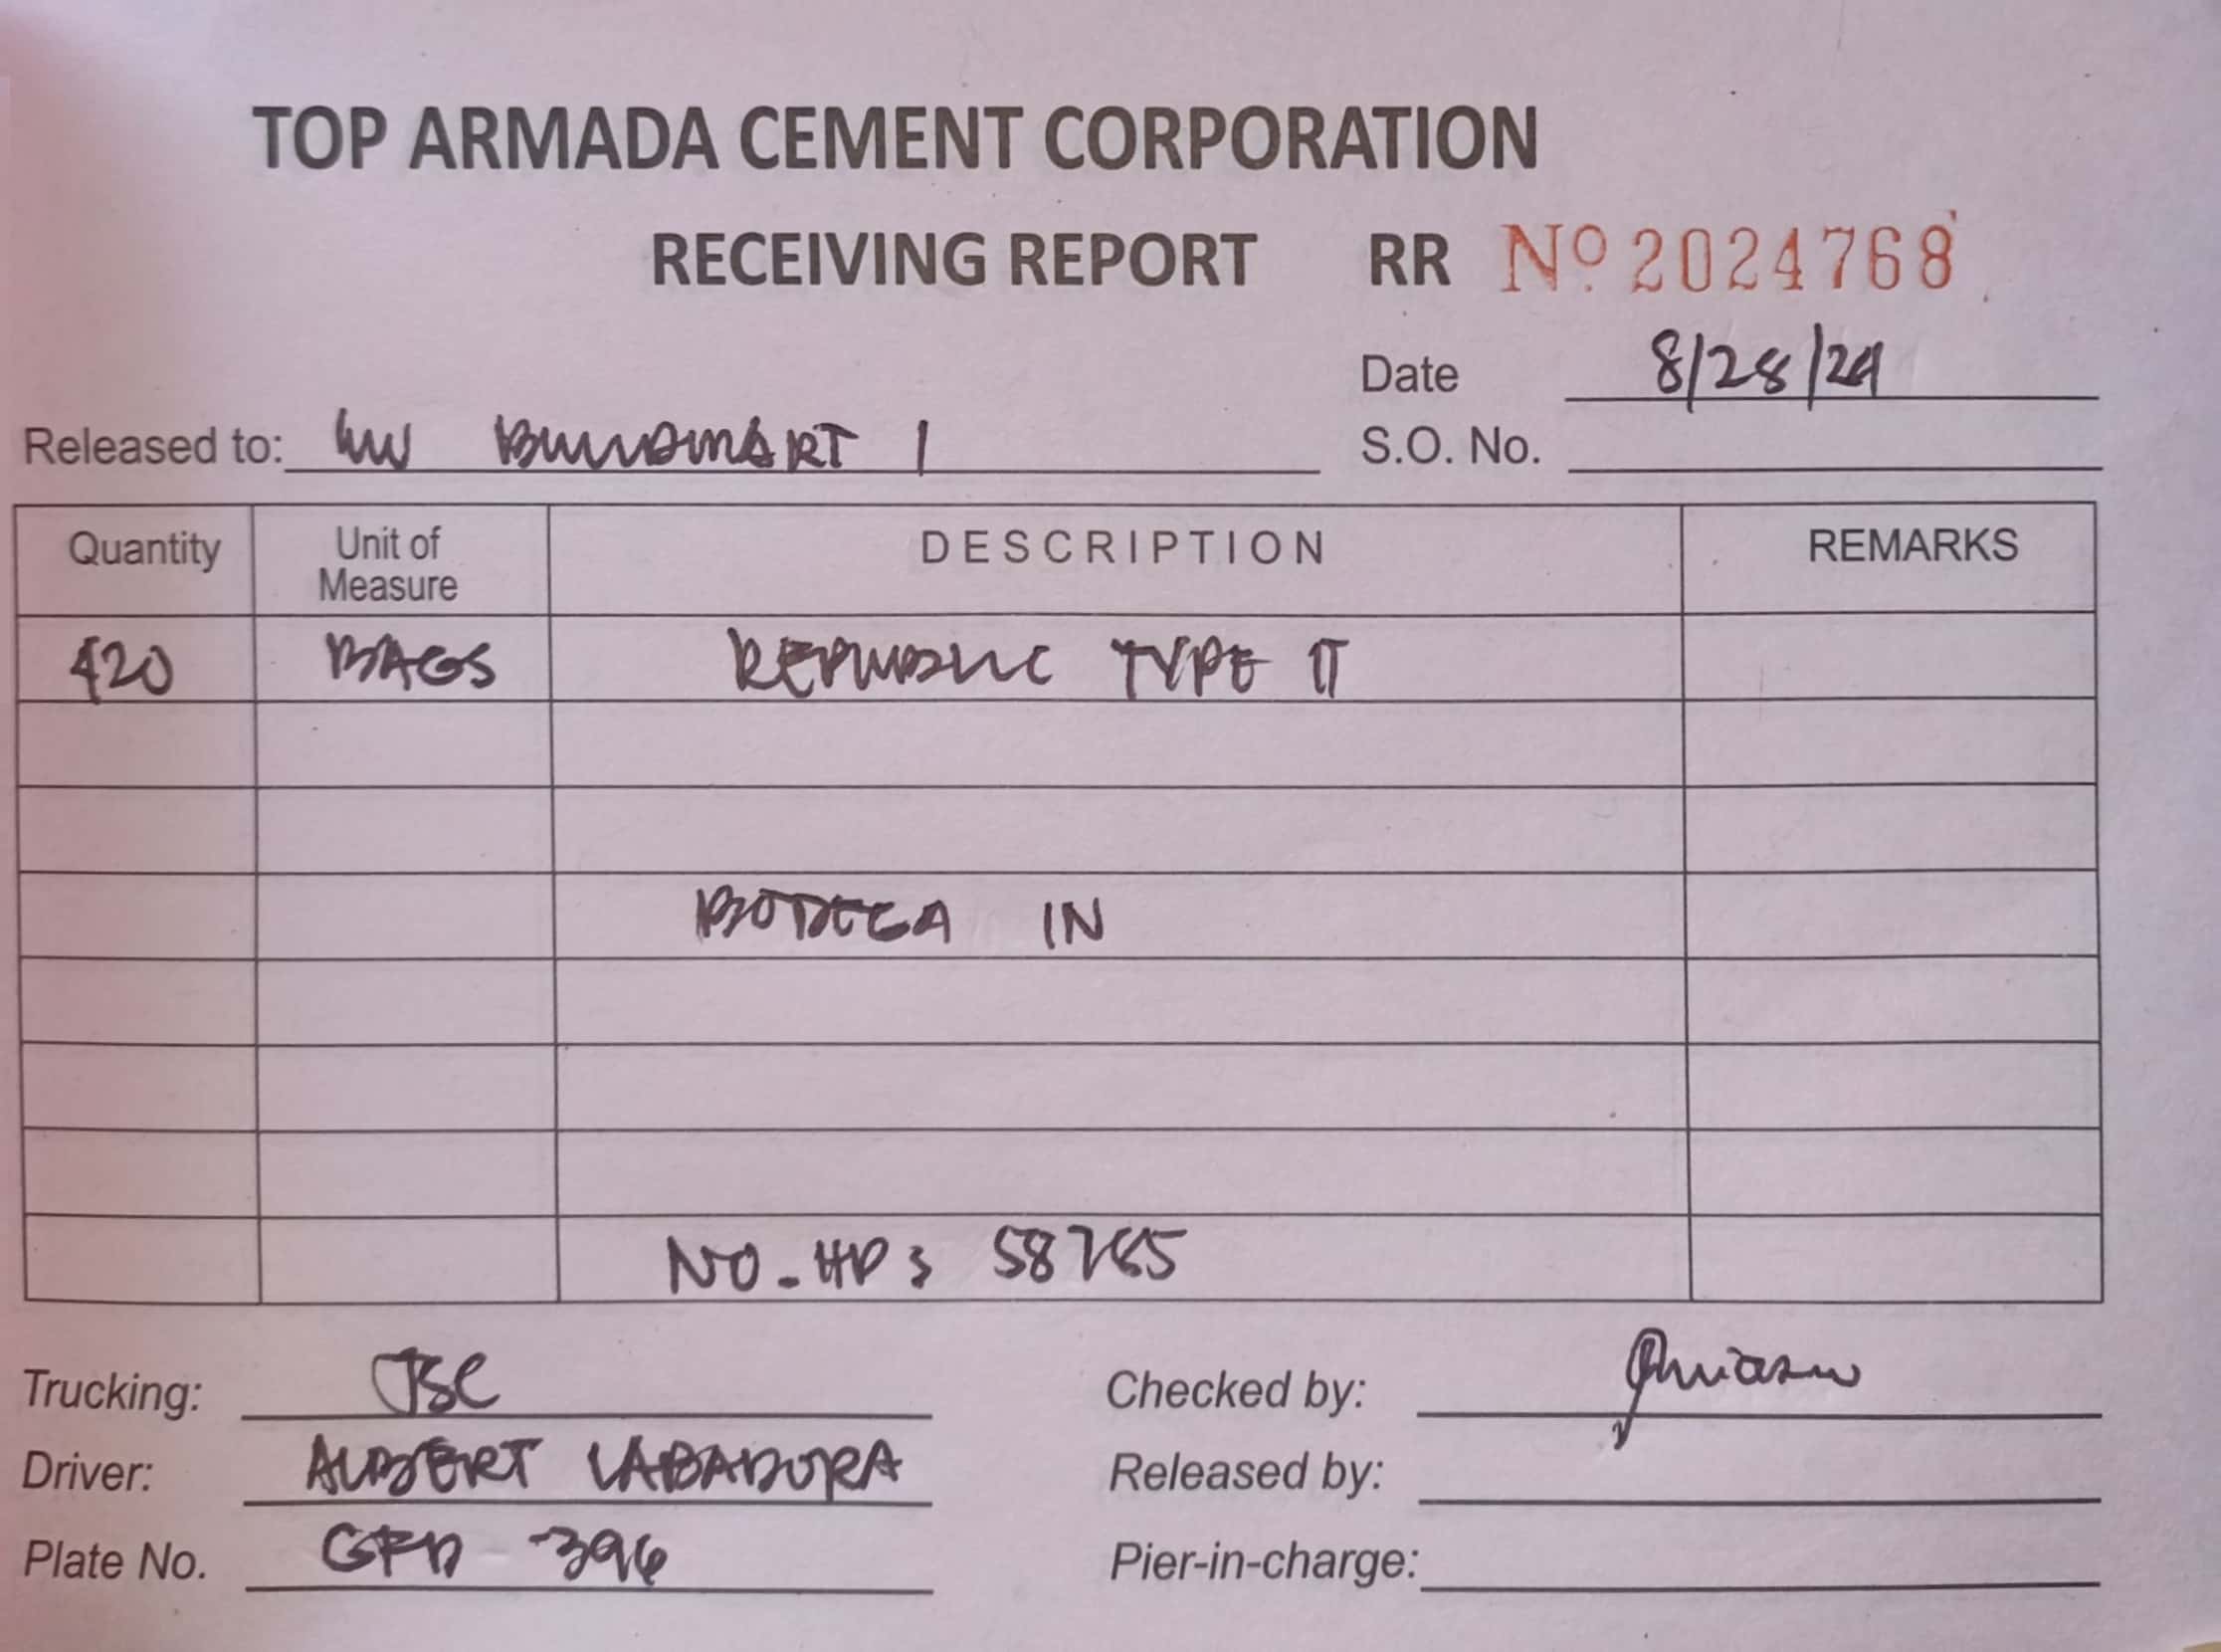 TOP ARMADA CEMENT CORPORATION
RECEIVING REPORT RR Nº 2024768
Date 8/28/24
Released to: BUILDMART 1 S.O. No.
Quantity Unit of Measure DESCRIPTION REMARKS
420 BAGS REPUBLIC TYPE II
BODEGA IN
NO. HP: 58785
Trucking: JSC Checked by:
Driver: ALBERT LABADORA Released by:
Plate No. 396 Pier-in-charge: